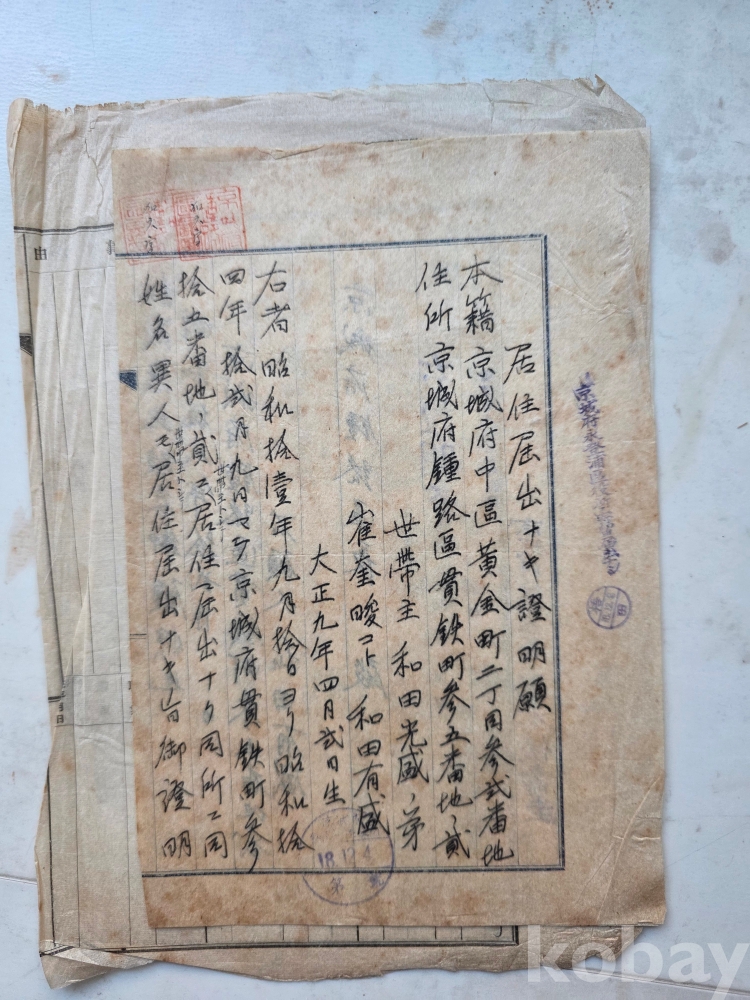 居住届出ナキ證明願
本籍 京城府中區黃金町二丁目參弍番地
住所 京城府鍾路區貫鉄町參五番地ノ貳
世帶主 和田光盛ノ弟
崔奎晙コト 和田有盛
大正九年四月弍日生
右者昭和拾壹年九月拾日ヨリ昭和拾
四年拾弍月九日マデ京城府貫鉄町參
拾五番地ノ貳ニ世帶主トシテ居住届出ナリ同所ニ同
姓名異人モ世帶主トシテ居住届出ナキ旨御證明
18.12.4
由
kobay